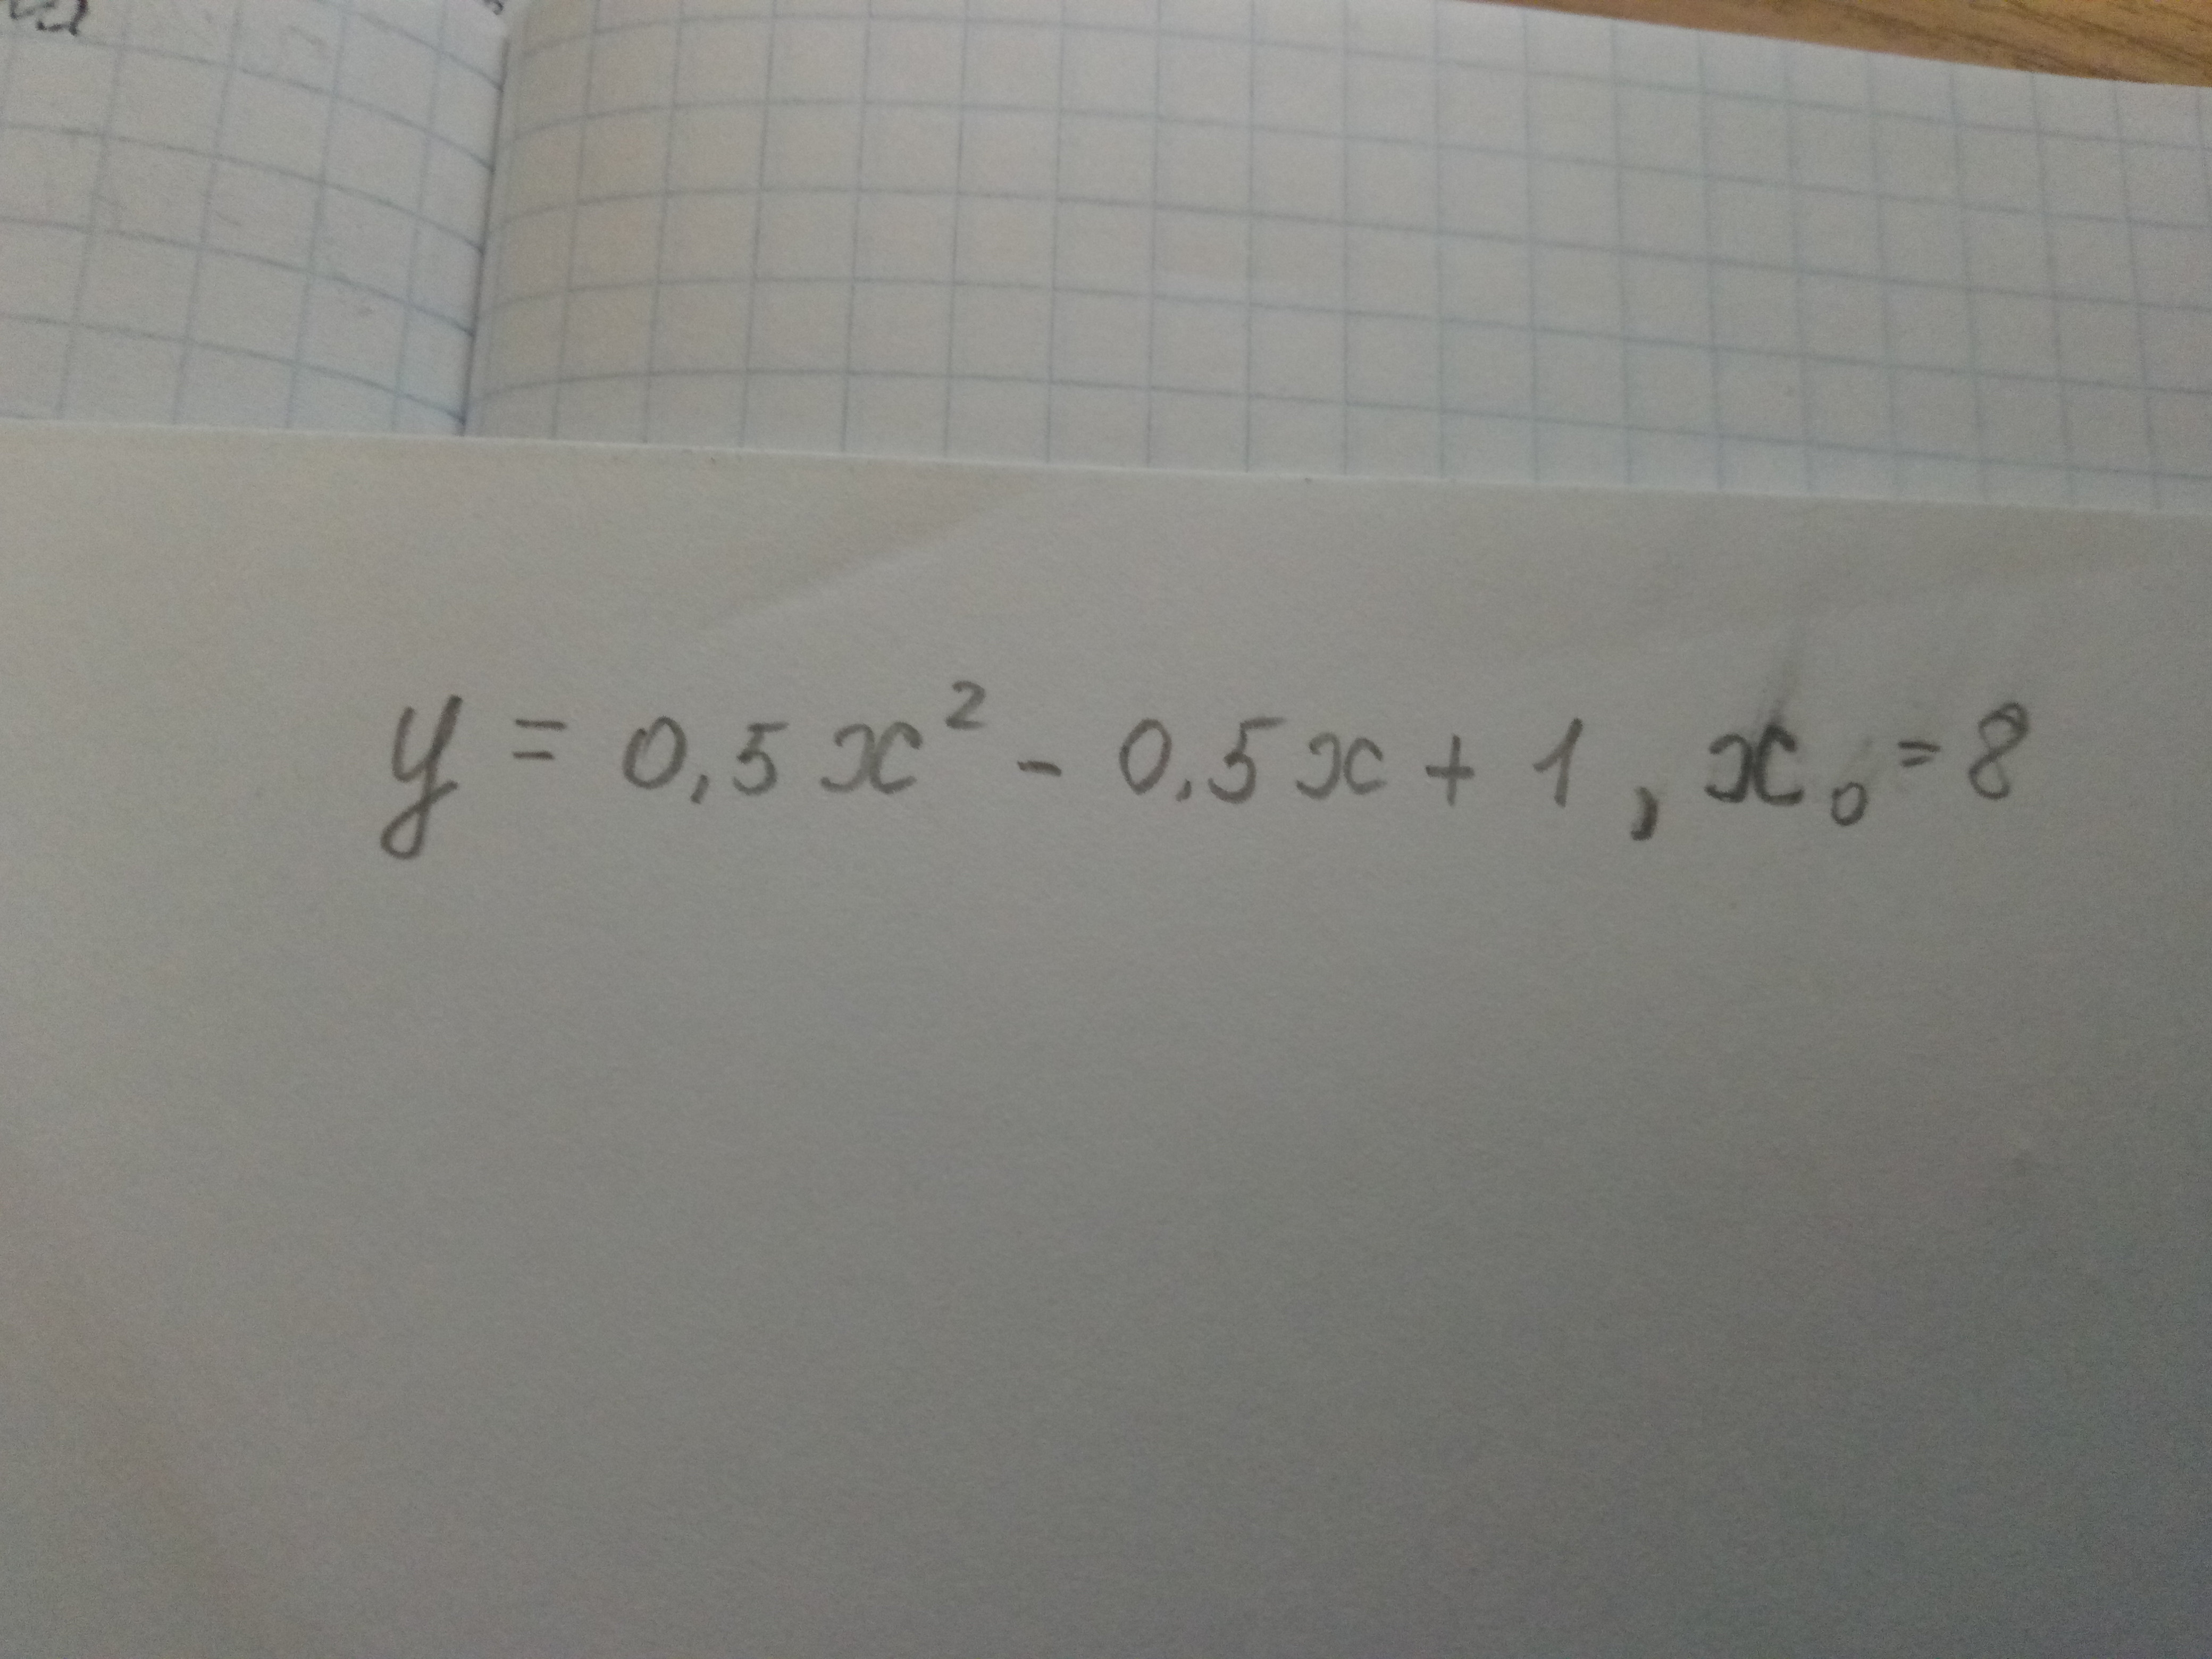 y = 0,5x² - 0,5x + 1, x₀ = 8